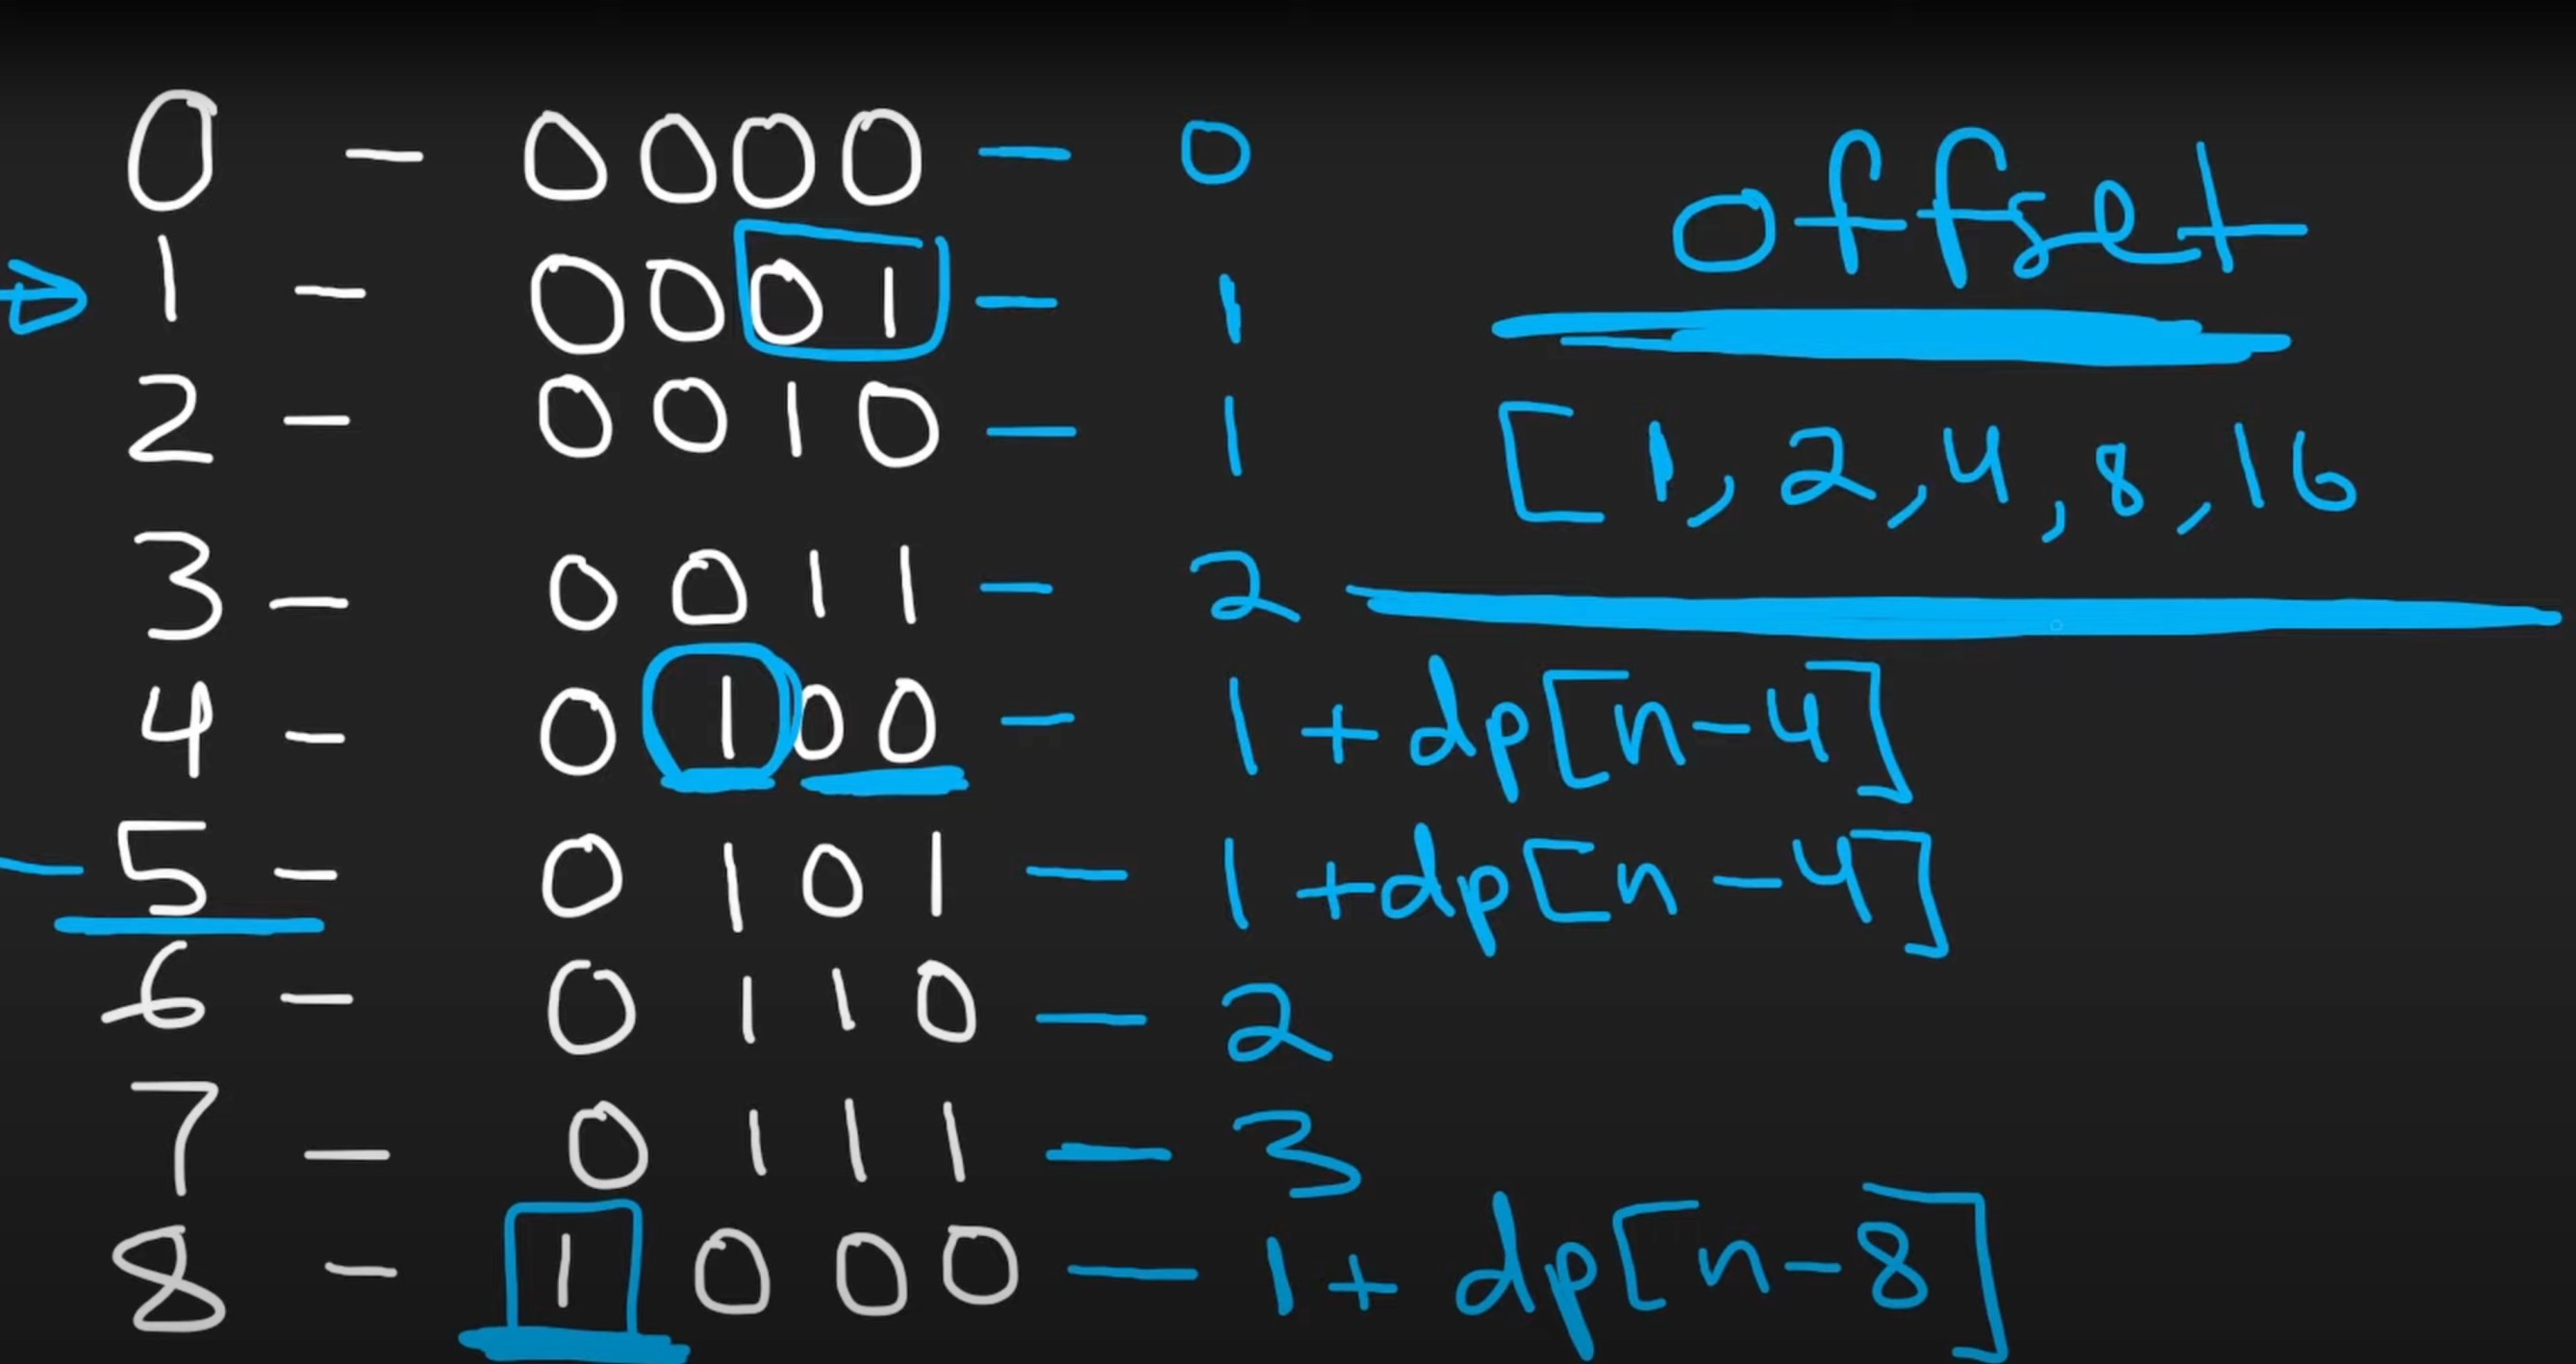 0 - 0000 - 0
1 - 0001 - 1
2 - 0010 - 1
3 - 0011 - 2
4 - 0100 - 1 + dp[n-4]
5 - 0101 - 1 + dp[n-4]
6 - 0110 - 2
7 - 0111 - 3
8 - 1000 - 1 + dp[n-8]
offset
[1, 2, 4, 8, 16